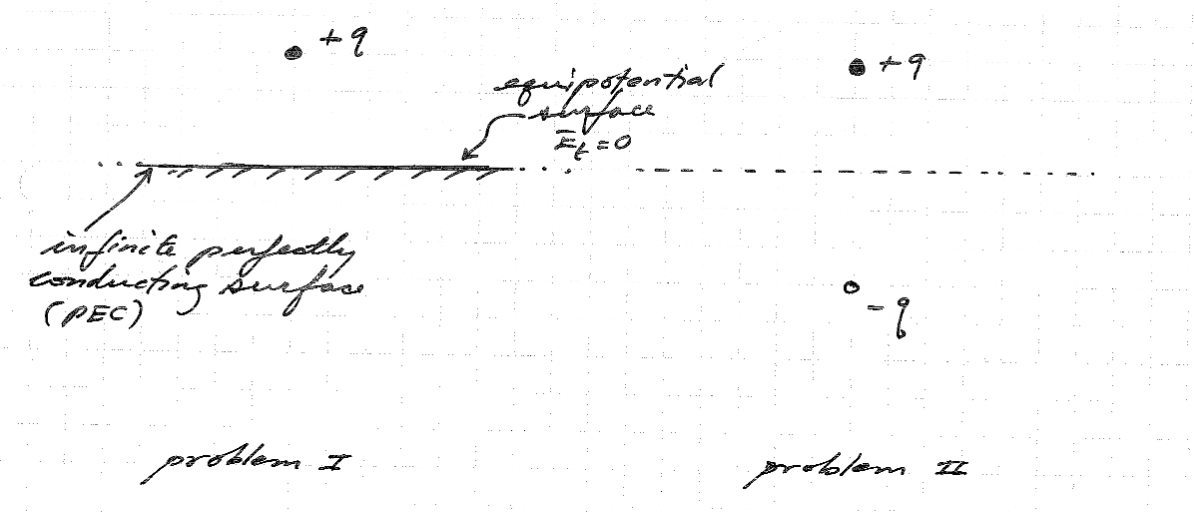 +q
equipotential
surface
Ēt = 0
infinite perfectly
conducting surface
(PEC)
problem I
+q
-q
problem II